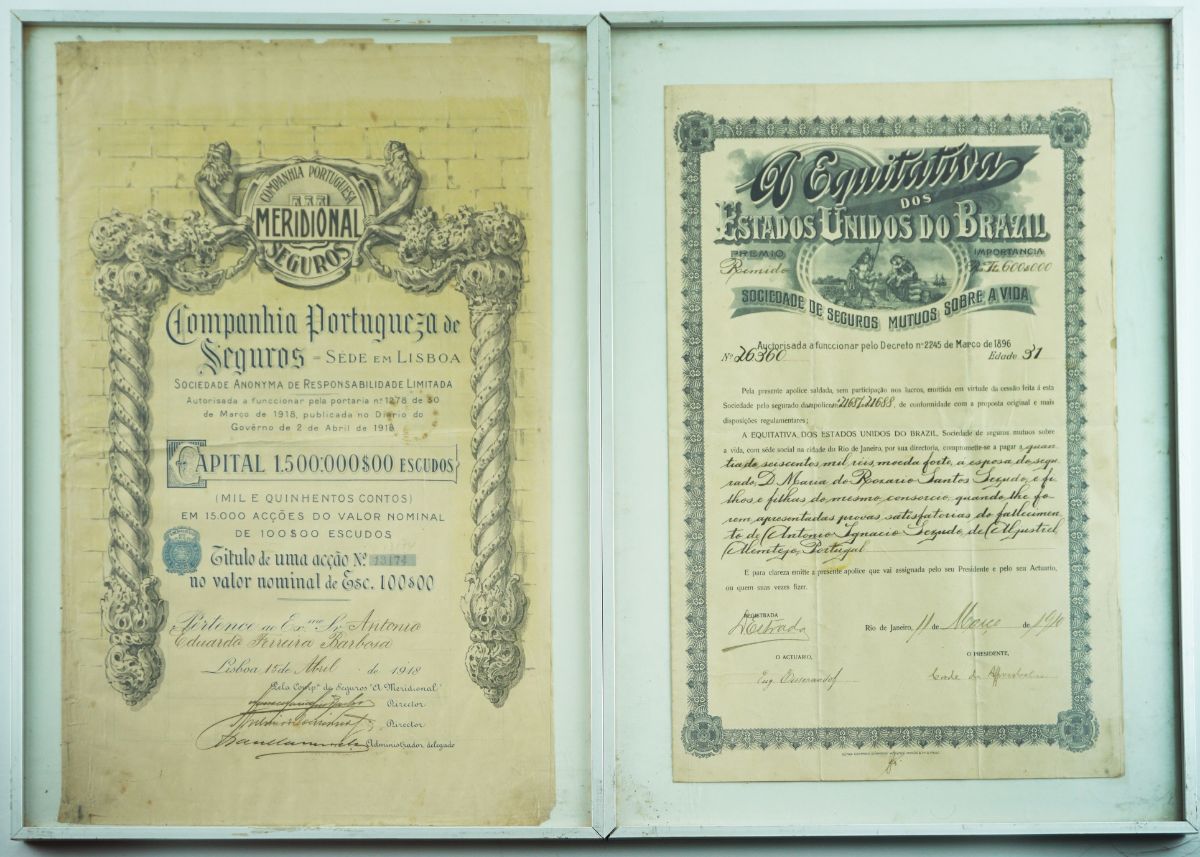 COMPANHIA PORTUGUESA
MERIDIONAL
SEGUROS
Companhia Portugueza de
Seguros = SÉDE EM LISBOA
SOCIEDADE ANONYMA DE RESPONSABILIDADE LIMITADA
Autorisada a funccionar pela portaria nº 1278 de 30
de Março de 1918, publicada no Diario do
Govêrno de 2 de Abril de 1918
CAPITAL 1.500:000$00 ESCUDOS
(MIL E QUINHENTOS CONTOS)
EM 15.000 ACÇÕES DO VALOR NOMINAL
DE 100$00 ESCUDOS
Titulo de uma acção Nº 13174
no valor nominal de Esc. 100$00
Pertence ao Exmo Sr Antonio
Eduardo Ferreira Barbosa
Lisboa 15 de Abril de 1918
Pela Compª de Seguros "A Meridional"
Director
Director
Administrador delegado
A Equitativa
DOS
ESTADOS UNIDOS DO BRAZIL
PREMIO
IMPORTANCIA
Remido
Rs. Ft. 600$000
SOCIEDADE DE SEGUROS MUTUOS, SOBRE A VIDA
Auctorisada a funccionar pelo Decreto nº 2245 de Março de 1896
Nº 26360
Edade 31
Pela presente apolice saldada, sem participação nos lucros, emittida em virtude da cessão feita á esta
Sociedade pelo segurado da apolice nº 21687-21688, de conformidade com a proposta original e mais
disposições regulamentares;
A EQUITATIVA DOS ESTADOS UNIDOS DO BRAZIL, Sociedade de seguros mutuos sobre
a vida, com séde social na cidade do Rio de Janeiro, por sua directoria, compromette-se a pagar a quan-
tia de seiscentos mil reis, moeda forte, a esposa do segu-
rado, D. Maria do Rozario Santos Sezudo, e fi-
lhos e filhas do mesmo consorcio, quando lhe fo-
rem apresentadas provas satisfatorias do fallecimen-
to de Antonio Ignacio Sezudo, de Aljustrel,
Alemtejo, Portugal
E para clareza emitte a presente apolice que vai assignada pelo seu Presidente e pelo seu Actuario,
ou quem suas vezes fizer.
REGISTRADA
Rio de Janeiro, 11 de Março de 1910
O ACTUARIO,
O PRESIDENTE,